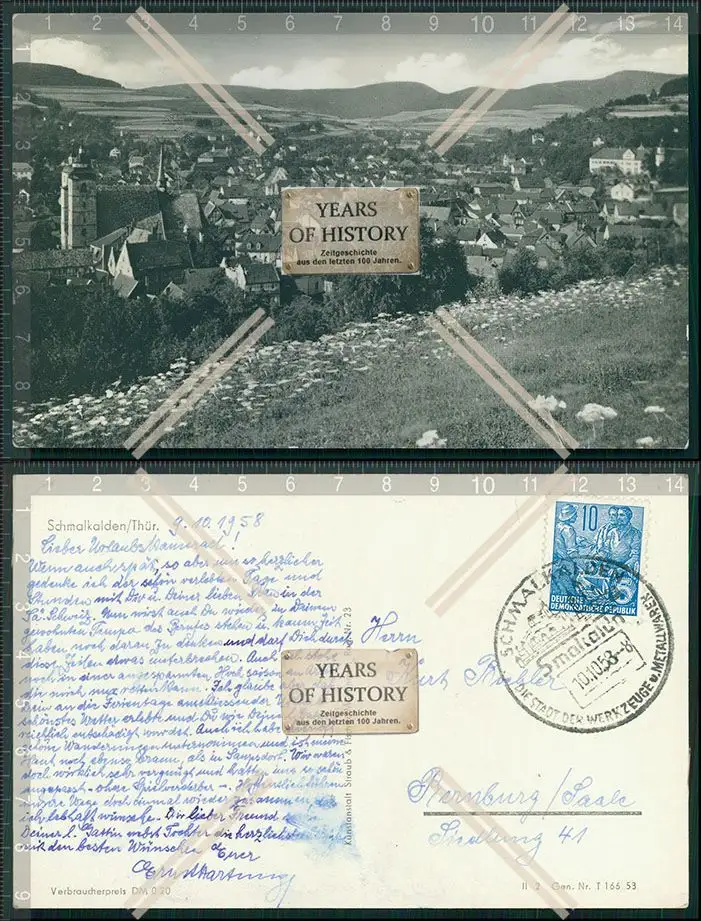 1 2 3 4 5 6 7 8 9 10 11 12 13 14
YEARS
OF HISTORY
Zeitgeschichte
aus den letzten 100 Jahren.
1 2 3 4 5 6 7 8 9 10 11 12 13 14
Schmalkalden/Thür. 9.10.1958
Lieber Urlaubskamerad!
Wenn auch spät, so aber umso herzlicher
gedenke ich der schön verlebten Tage und
Stunden mit Dir u. Deiner lieben in der
Sä. Schweiz. Nun wirst auch Du wieder in Deinem
gewohnten Tempo des Berufes stehen u. kaum Zeit
haben noch daran zu denken und darf Dich durch
diese Zeilen etwas unterbrechen. Auch ich stehe
noch in einer angespannten Hoch
Ich glaube
an die Ferientage anschliessender
schönstes Wetter erlebte und Du wie Deine
entschädigt wurdest. Auch ich habe
schöne Wanderungen unternommen und
Haut noch ebenso braun, als in
doch wirklich sehr vergnügt und hatten uns so schön
angepasst - ohne Spielverderber -. Hoffentlich führen
unsere Wege doch einmal wieder zusammen, das
ich lebhaft wünsche. Dir lieber Freund
Deiner l. Gattin nebst Tochter die herzlichsten
mit den besten Wünschen Euer
Ernst Hartung
Verbraucherpreis DM 0.20
Kunstanstalt Straub &
23
YEARS
OF HISTORY
Zeitgeschichte
aus den letzten 100 Jahren.
10
5
DEUTSCHE
DEMOKRATISCHE REPUBLIK
SCHMALKALDEN
Smalkaldn
10.10.58-8
DIE STADT DER WERKZEUGE u. METALLWAREN
Herrn
Kurt
Bernburg/Saale
Siedlung 41
II 2 Gen. Nr. T 166 53